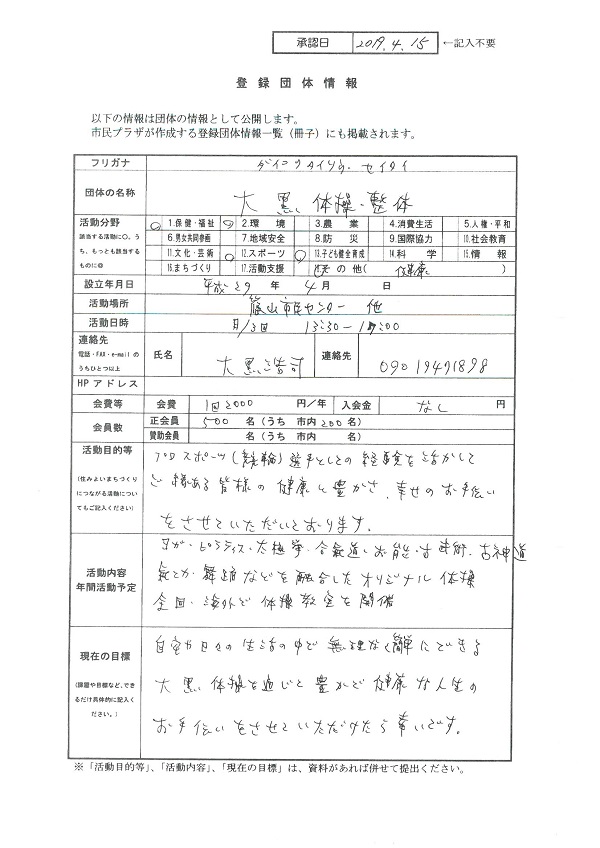 承認日 2019.4.15 ←記入不要
登録団体情報
以下の情報は団体の情報として公開します。
市民プラザが作成する登録団体情報一覧（冊子）にも掲載されます。
フリガナ ダイコクタイソウ・セイタイ
団体の名称 大黒体操・整体
活動分野 該当する活動に○。うち、もっとも該当するものに◎
1.保健・福祉 2.環境 3.農業 4.消費生活 5.人権・平和
6.男女共同参画 7.地域安全 8.防災 9.国際協力 10.社会教育
11.文化・芸術 12.スポーツ 13.子ども健全育成 14.科学 15.情報
16.まちづくり 17.活動支援 18.その他（健康）
設立年月日 平成29年4月 日
活動場所 篠山市民センター 他
活動日時 月/3回 13:30-17:00
連絡先 電話・FAX・e-mailのうちひとつ以上 氏名 大黒 連絡先 09019471898
HPアドレス
会費等 会費 1回2000 円/年 入会金 なし 円
会員数 正会員 500 名（うち 市内200名）
賛助会員 名（うち 市内 名）
活動目的等
（住みよいまちづくりにつながる活動についてもご記入ください）
プロスポーツ（競輪）選手としての経験を活かして
ご縁ある皆様の健康と豊かさ、幸せのお手伝い
をさせていただいております。
活動内容
年間活動予定
ヨガ・ピラティス・太極拳・合氣道・お能・古武術・古神道
舞踏などを融合したオリジナル体操
全国・海外で体操教室を開催
現在の目標
（課題や目標など、できるだけ具体的に記入ください。）
自宅や日々の生活の中で無理なく簡単にできる
大黒体操を通じて豊かで健康な人生の
お手伝いをさせていただけたら幸いです。
※「活動目的等」、「活動内容」、「現在の目標」は、資料があれば併せて提出ください。